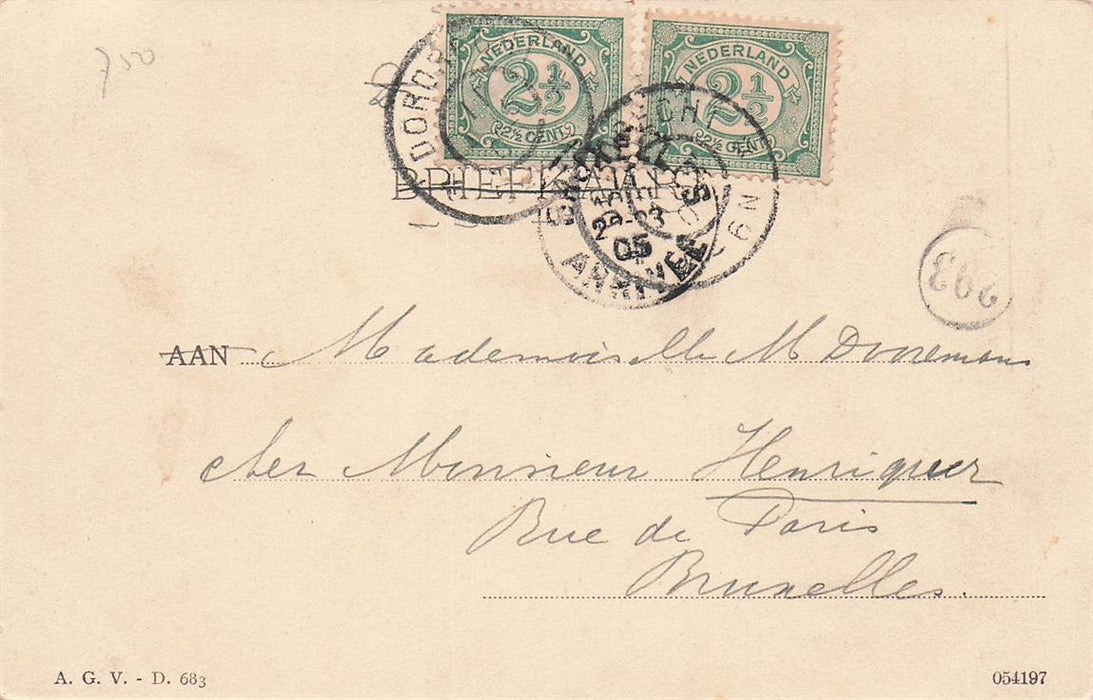 750
NEDERLAND NEDERLAND
2½ 2½
2½ CENT 2½ CENT
DORDRE
BRIEFKAART
23
05
ARRIVEE
6N
293
AAN Mademoiselle M Dooremans
chez Monsieur Henriquez
Rue de Paris
Bruxelles.
A. G. V. - D. 683
054197